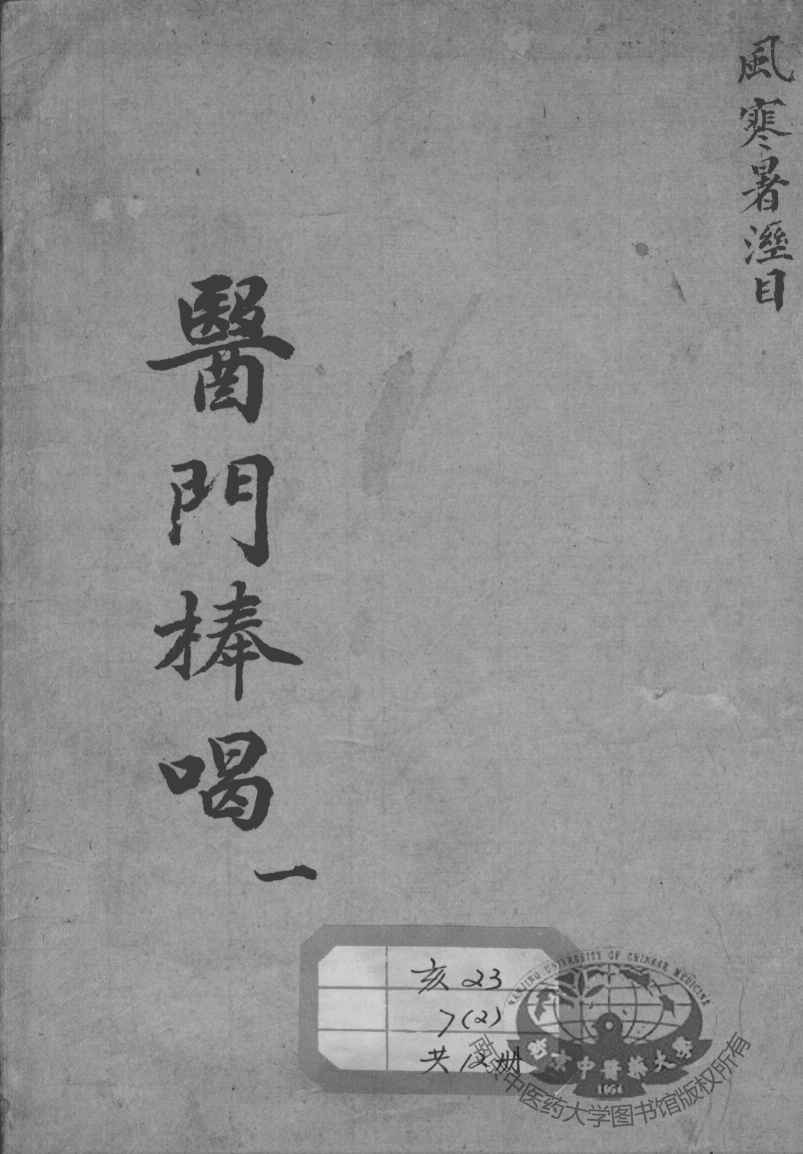 風寒暑溼目
醫門棒喝
一
亥23
7(2)
共12册
NANJING UNIVERSITY OF CHINESE MEDICINE
南京中醫藥大學
1954
南京中医药大学图书馆版权所有